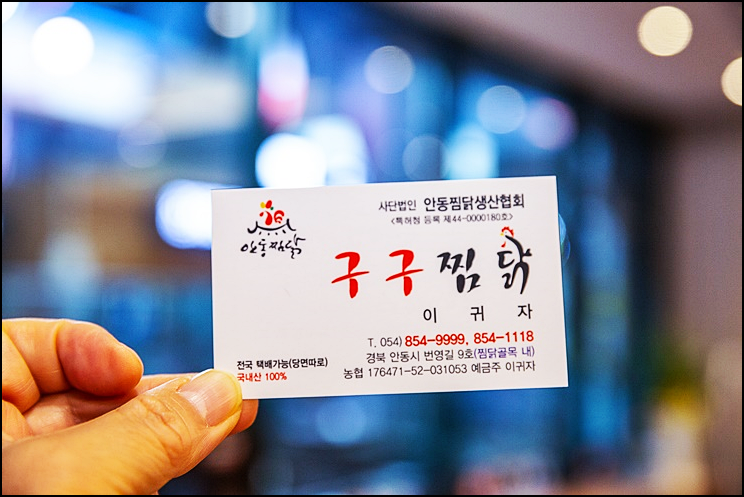 안동찜닭
사단법인 안동찜닭생산협회
<특허청 등록 제44-0000180호>
구구찜닭
이 귀 자
T. 054) 854-9999, 854-1118
경북 안동시 번영길 9호(찜닭골목 내)
농협 176471-52-031053 예금주 이귀자
전국 택배가능(당면따로)
국내산 100%